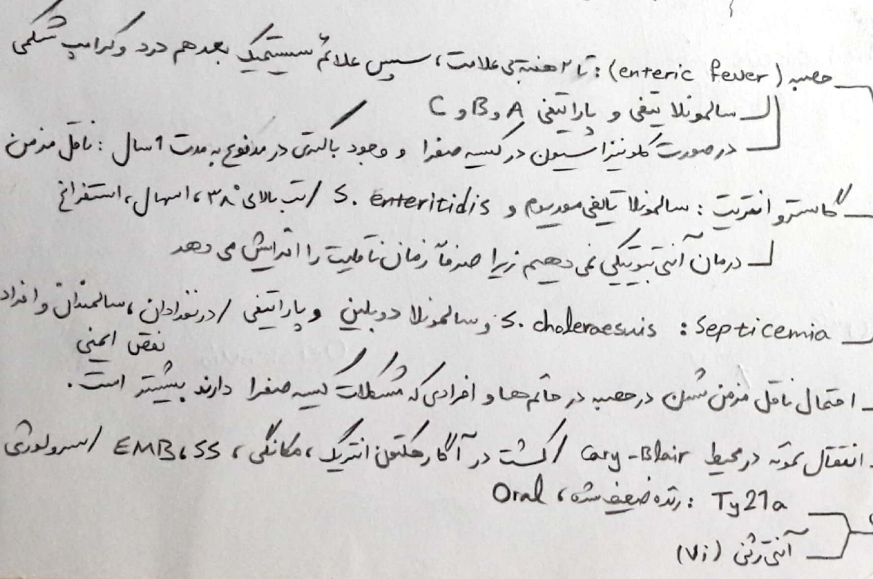 حصبه (enteric fever): تا ۲ هفته بی علامت، سپس علائم سیستمیک بعد هم درد و کرامپ شکمی
سالمونلا تیفی و پاراتیفی A و B و C
درصورت کلونیزاسیون در کیسه صفرا و وجود باکتری در مدفوع به مدت 1 سال: ناقل مزمن
گاستروانتریت: سالمونلا تایفی موریوم و S. enteritidis / تب بالای ۳۸°، اسهال، استفراغ
درمان آنتی بیوتیکی نمی دهیم زیرا صرفاً زمان ناقلیت را افزایش می دهد
Septicemia: S. choleraesuis و سالمونلا دوبلین و پاراتیفی / در نوزادان، سالمندان و افراد
نقص ایمنی
احتمال ناقل مزمن شدن در حصبه در خانم ها و افرادی که مشکلات کیسه صفرا دارند بیشتر است.
انتقال نمونه در محیط Cary-Blair / کشت در آگار هکتون انتریک، مکانکی، SS، EMB / سرولوژی
Ty21a: زنده ضعیف شده، Oral
آنتی ژن (Vi)